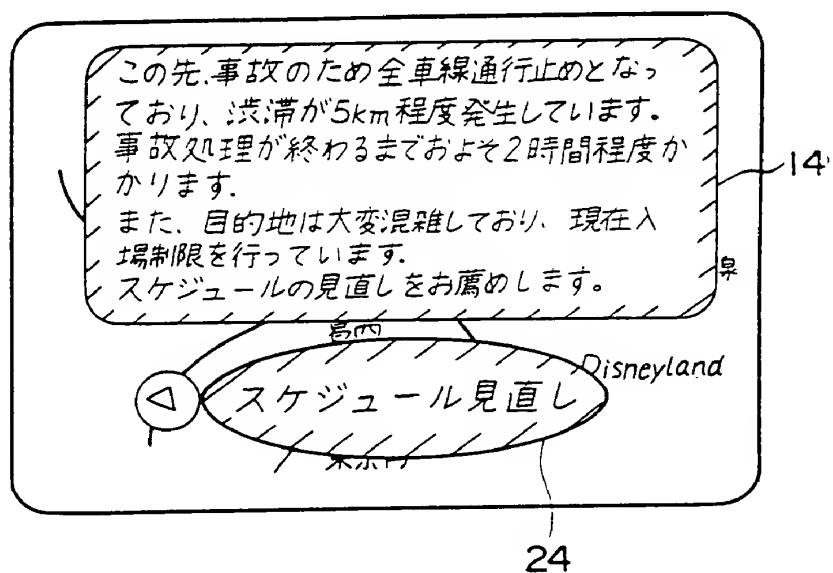 この先、事故のため全車線通行止めとなっ
ており、渋滞が5km程度発生しています。
事故処理が終わるまでおよそ2時間程度か
かります.
また、目的地は大変混雑しており、現在入
場制限を行っています.
スケジュールの見直しをお薦めします。
14
葛西
Disneyland
スケジュール見直し
24